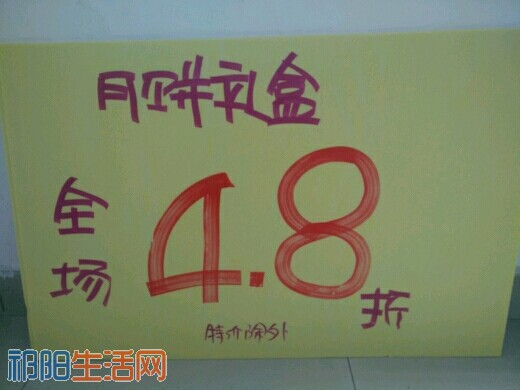 月饼礼盒
全场 4.8 折
特价除外
祁阳生活网